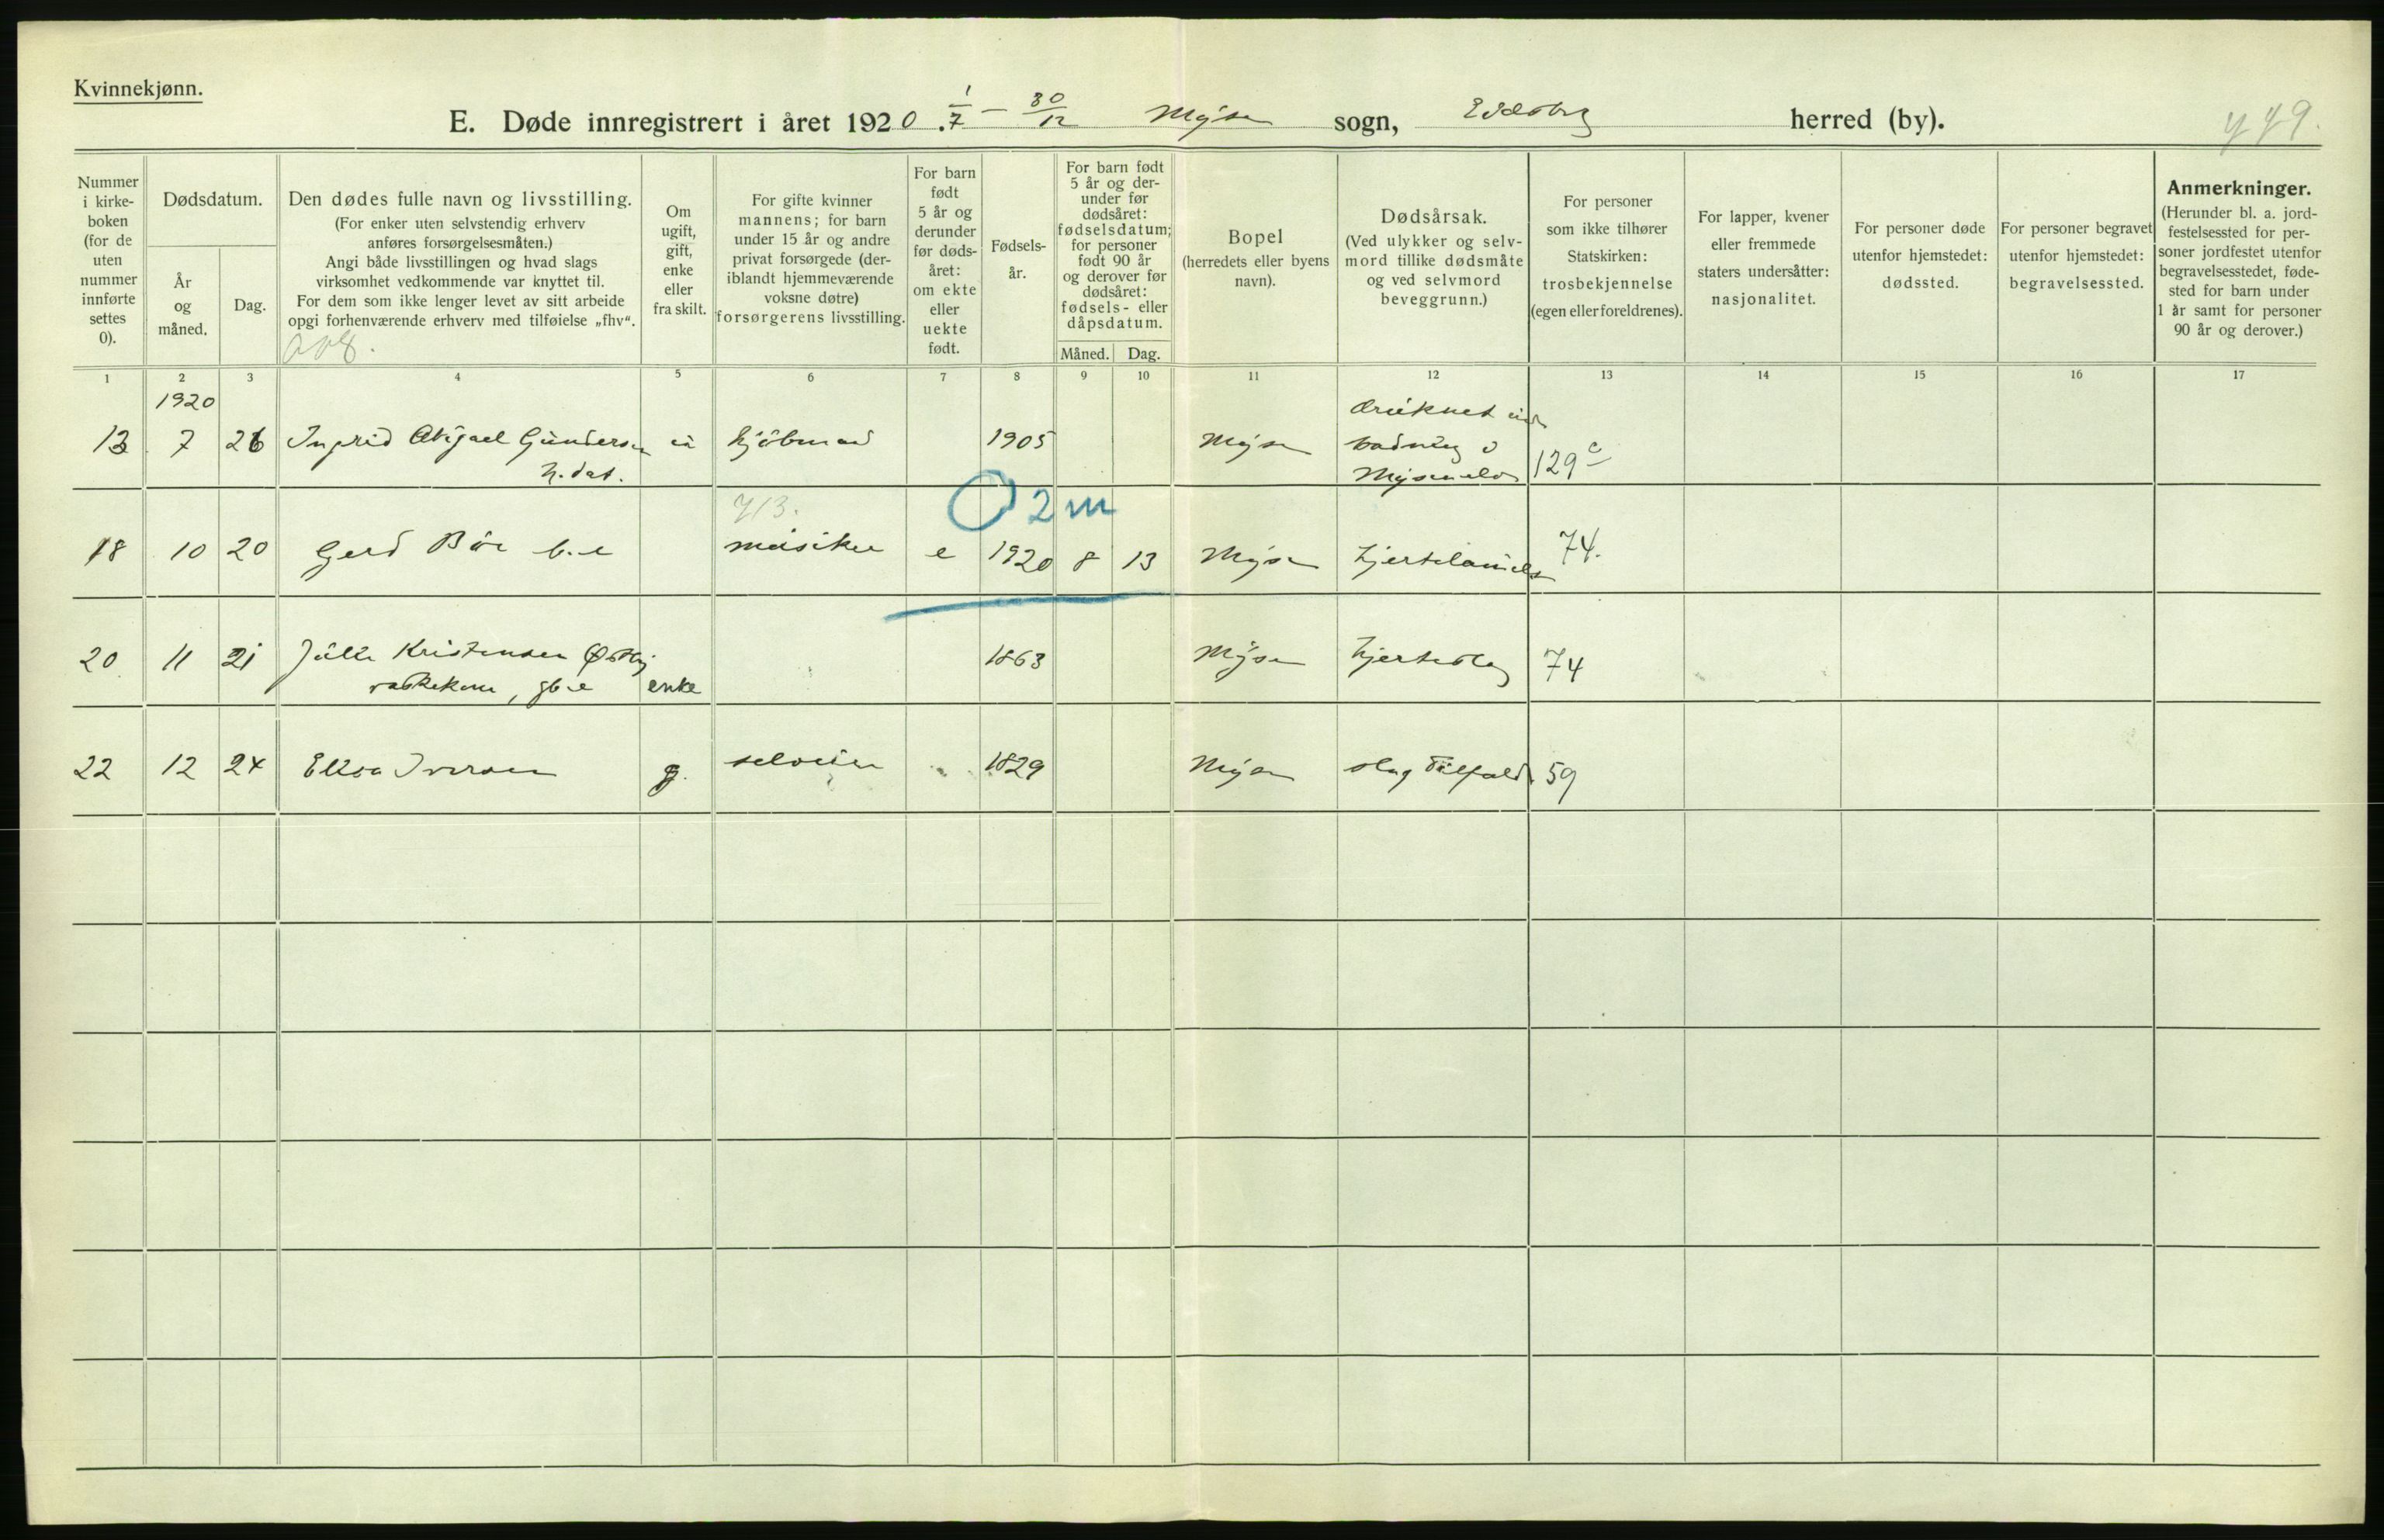 Kvinnekjønn.
E. Døde innregistrert i året 1920. 1/7 – 30/12 Mysen sogn, Eidsberg herred (by).
449.
Nummer i kirkeboken (for de uten nummer innførte settes 0).
Dødsdatum.
År og måned.
Dag.
Den dødes fulle navn og livsstilling.
(For enker uten selvstendig erhverv
anføres forsørgelsesmåten.)
Angi både livsstillingen og hvad slags
virksomhet vedkommende var knyttet til.
For dem som ikke lenger levet av sitt arbeide
opgi forhenværende erhverv med tilføielse „fhv“.
Om ugift, gift, enke eller fraskilt.
For gifte kvinner
mannens; for barn
under 15 år og andre
privat forsørgede (der-
iblandt hjemmeværende
voksne døtre)
forsørgerens livsstilling.
For barn født 5 år og derunder før dødsåret: om ekte eller uekte født.
Fødsels-
år.
For barn født
5 år og der-
under før
dødsåret:
fødselsdatum;
for personer
født 90 år
og derover før
dødsåret:
fødsels- eller
dåpsdatum.
Måned.
Dag.
Bopel
(herredets eller byens
navn).
Dødsårsak.
(Ved ulykker og selv-
mord tillike dødsmåte
og ved selvmord
beveggrunn.)
For personer
som ikke tilhører
Statskirken:
trosbekjennelse
(egen eller foreldrenes).
For lapper, kvener
eller fremmede
staters undersåtter:
nasjonalitet.
For personer døde
utenfor hjemstedet:
dødssted.
For personer begravet
utenfor hjemstedet:
begravelsessted.
Anmerkninger.
(Herunder bl. a. jord-
festelsessted for per-
soner jordfestet utenfor
begravelsesstedet, føde-
sted for barn under
1 år samt for personer
90 år og derover.)
1 2 3 4 5 6 7 8 9 10 11 12 13 14 15 16 17
1920
13 7 26 Ingrid Abigael Gundersen h.dat. u kjöbmand 1905 Mysen druknet und badning i Mysenelv 129 c
713.
2 m
18 10 20 Gerd b.e musiker e 1920 8 13 Mysen hjertelammelse 74.
20 11 21 Julie Kristensen Østby vaskekone, enke 1863 Mysen hjerteslag 74
22 12 24 Elisa Iversen g. selveier 1829 Mysen slagtilfælde 59